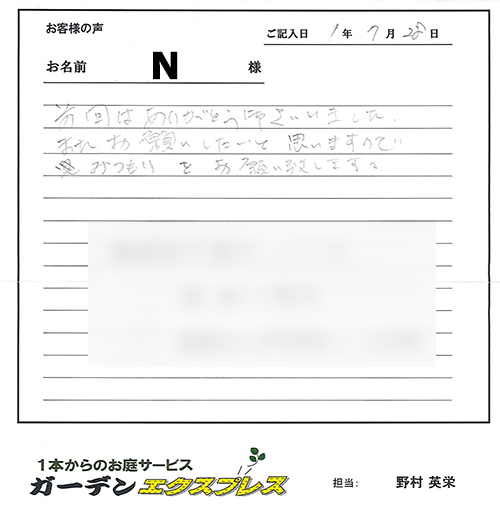 お客様の声
ご記入日 1年 7月 28日
お名前 N 様
前回はありがとう御ざいました。
またお願いしたいと思いますので
みつもりをお願い致します。
1本からのお庭サービス
ガーデンエクスプレス
担当: 野村 英栄